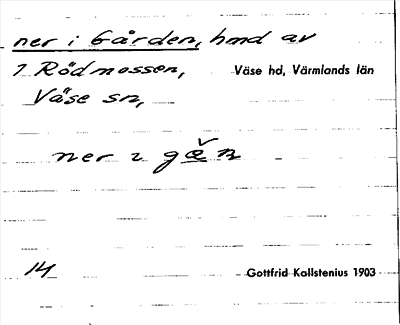 ner i Gården, hmd av
1 Rödmossen, Väse hd, Värmlands län
Väse sn,
ner i
14 Gottfrid Kallstenius 1903